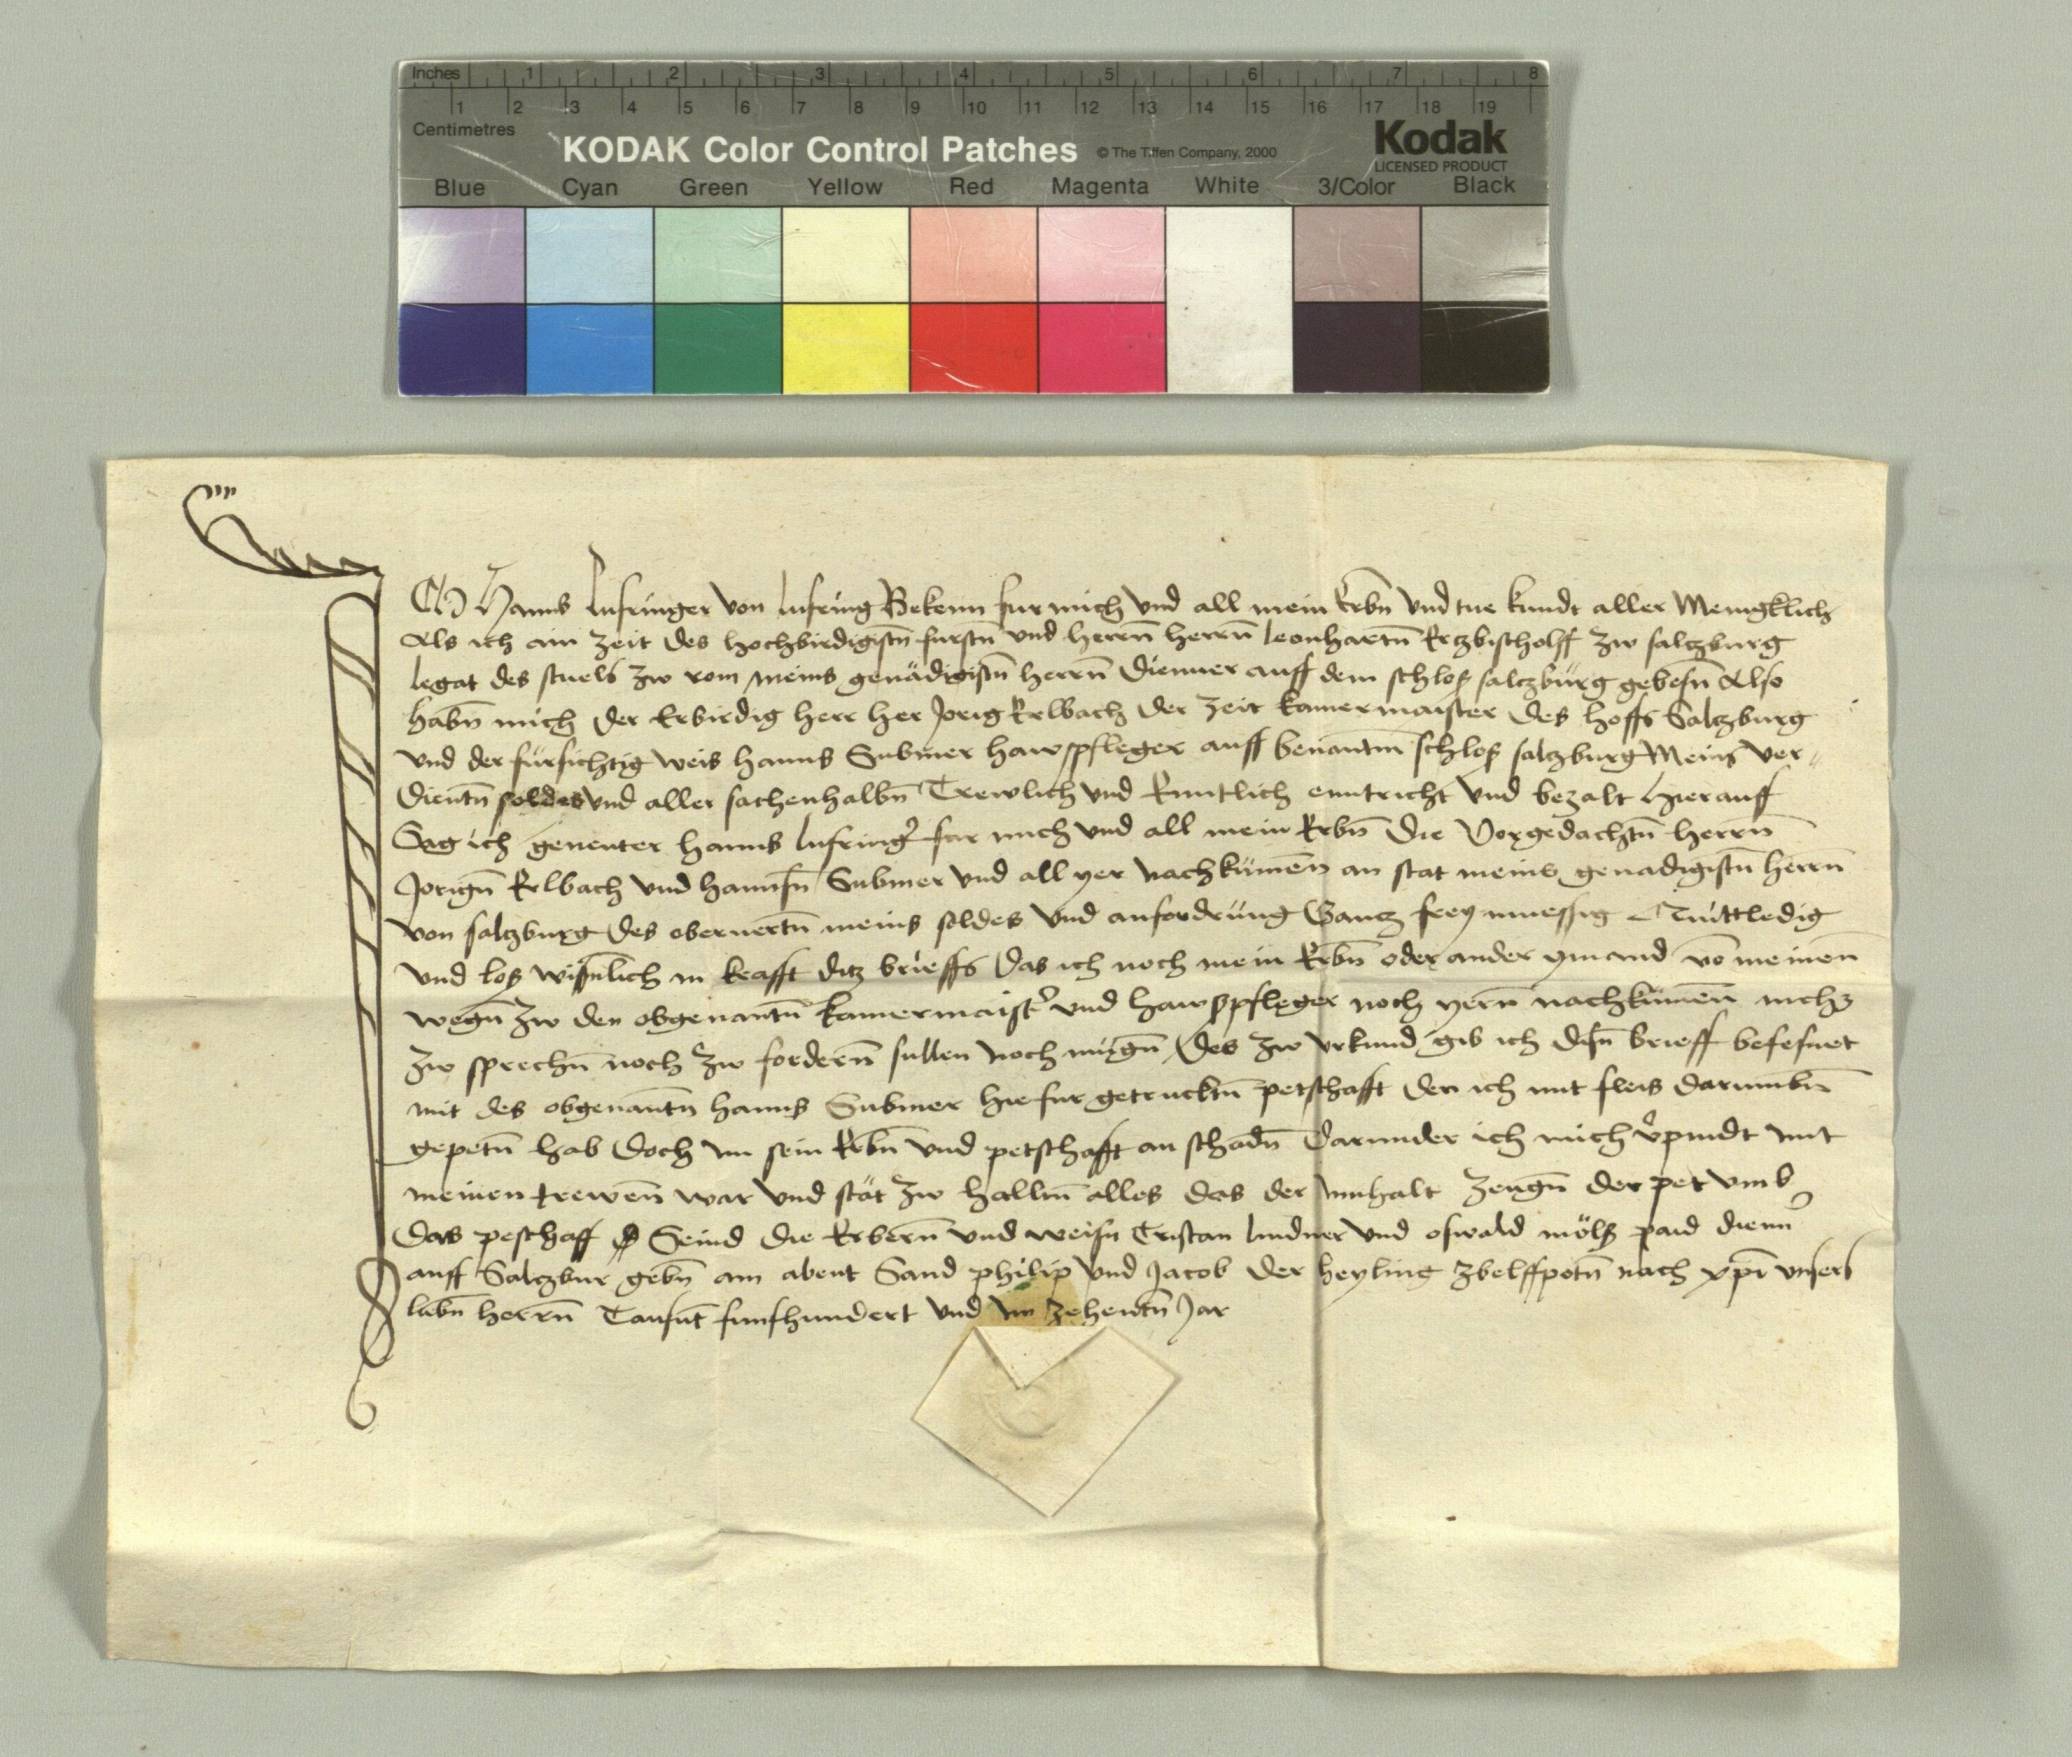 Inches 1 2 3 4 5 6 7 8
1 2 3 4 5 6 7 8 9 10 11 12 13 14 15 16 17 18 19
Centimetres
KODAK Color Control Patches © The Tiffen Company, 2000 Kodak
LICENSED PRODUCT
Blue Cyan Green Yellow Red Magenta White 3/Color Black
ICH Hanns lufringer von lufring Bekenn fur mich vnd all mein Erbn̄ vnd tue kundt aller Menigklich
Als ich ain zeit des hochbirdigistn̄ furstn̄ vnd herrn̄ herrn̄ leonhartn̄ Ertzbischolff zw saltzburg
legat des stuels zw rom meins genädigistn̄ herrn̄ Dienner auff dem schloß saltzbürg gebesn̄ Also
habn̄ mich der Erbirdig herr her Jorig Erlbach der zeit kamermaister des hoffs Saltzburg
vnd der fürsichtig weis hanns Submer hawspfleger auff benantm̄ schloß saltzburg Meins ver
Dientn̄ soldes vnd aller sachenhalbn̄ Trewlich vnd Entlich enntricht vnd bezalt Hierauff
Sag ich genenter hanns lufringer fur mich vnd all mein Erbn̄ die Vorgedachtn̄ herrn̄
Jorign̄ Erlbach vnd hannsn̄ Submer vnd all yer nachkümen̄ an stat meins genadigistn̄ herrn̄
von saltzburg des oberuertn̄ meins soldes vnd anfordrüng Gantz frey muessig Quittledig
vnd loß wisn̄lich in krafft ditz brieffs Das ich noch mein Erbn̄ oder ander ymand vō meinen̄
wegn̄ zw den obgenantn̄ kamermaister vnd hawspfleger noch yern̄ nachkümen̄ nichtz
zw sprechn̄ noch zw fordern̄ sullen noch mügn̄ Des zw vrkund gib ich disn̄ brieff befesnet
mit des obgenantn̄ hanns Submer hiefur getrucktn̄ petschafft den ich mit fleis darumbn̄
gepetn̄ hab Doch im sein Erbn̄ vnd petschafft an schadn̄ Darunder ich mich v̓pindt mit
meinen trewen̄ war vnd stät zw halltn̄ alles das der innhalt zeugn̄ der pet vmb
das peschaff Seind die Erbern̄ vnd weisn̄ Tristan lindner vnd oswald mölß paid dienn̓
auff Saltzbur gebn̄ am abent Sand philip vnd Jacob der heyling zbelffpotn̄ nach xp̄i vnsers
liebn̄ herrn̄ Tausn̄t funfhundert vnd im zehentn̄ Jar